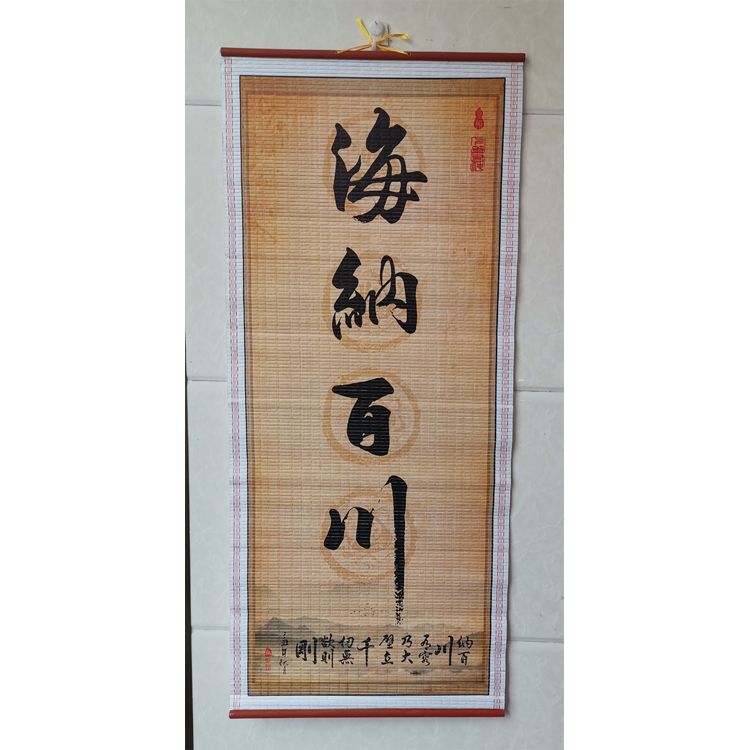 海納百川
納百
川
有容
乃大
壁立
千
仞無
欲則
剛